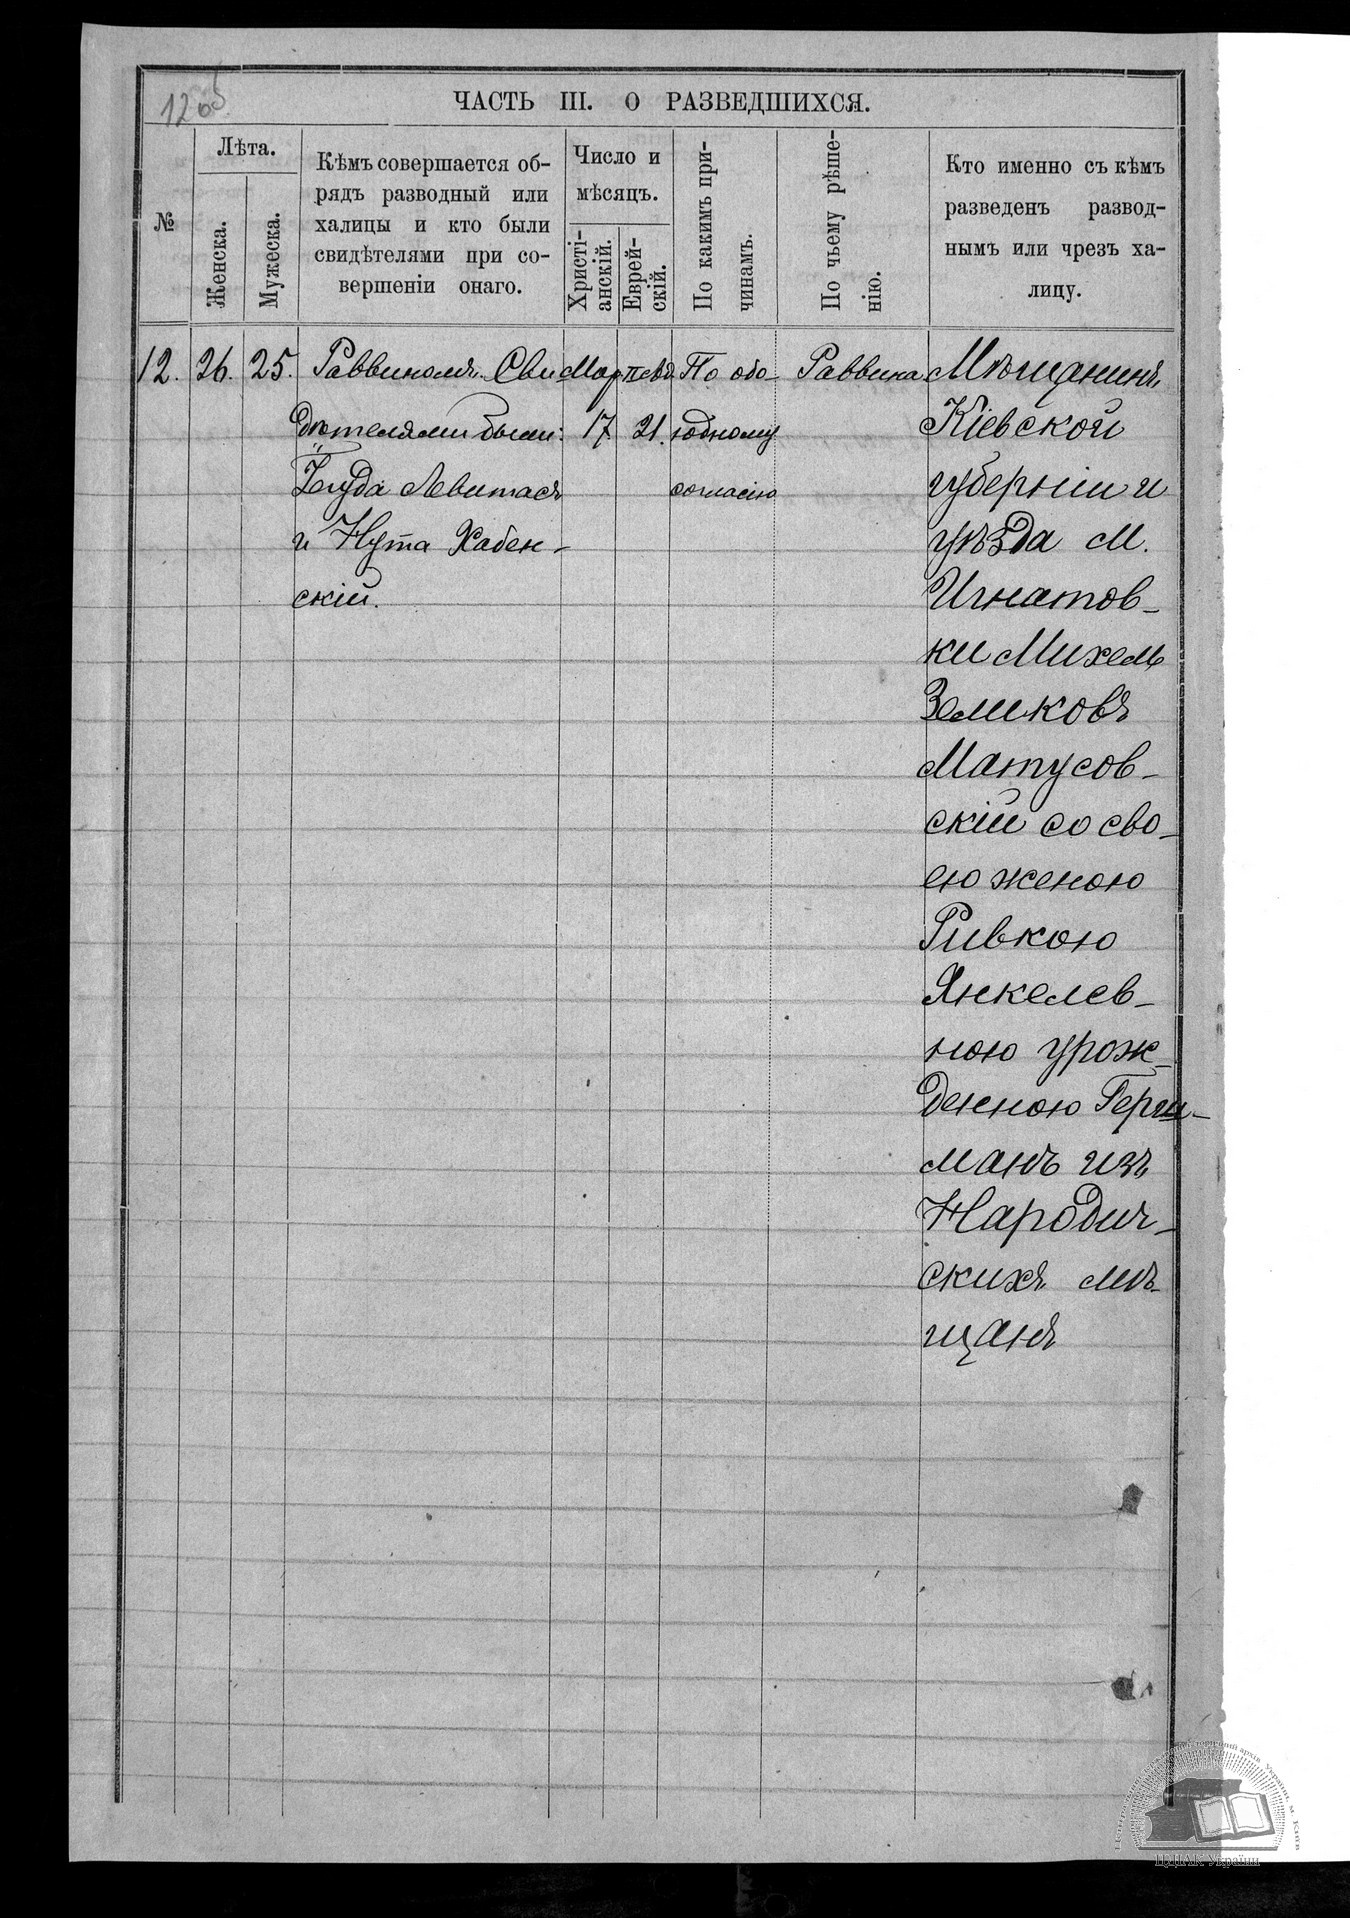 120
ЧАСТЬ III. О РАЗВЕДШИХСЯ.
№
Лѣта.
Женска.
Мужеска.
Кѣмъ совершается об-
рядъ разводный или
халицы и кто были
свидѣтелями при со-
вершеніи онаго.
Число и
мѣсяцъ.
Христі-
анскій.
Еврей-
скій.
По какимъ при-
чинамъ.
По чьему рѣше-
нію.
Кто именно съ кѣмъ
разведенъ развод-
нымъ или чрезъ ха-
лицу.
12.
26.
25.
Раввиномъ. Сви
дѣтелями были:
Іегуда Левитасъ
и Нута Хабен-
скій.
Мар
17
21.
По обо-
юдному
согласію
Раввина
Мѣщанинъ
Кіевской
губерніи и
уѣзда м.
Игнатов-
ки Михель
Зеликовъ
Матусов-
скій со сво-
ею женою
Ривкою
Янкелев-
ною урож-
денною Герш-
манъ изъ
Народич-
скихъ мѣ-
щанъ
ЦДІАК України